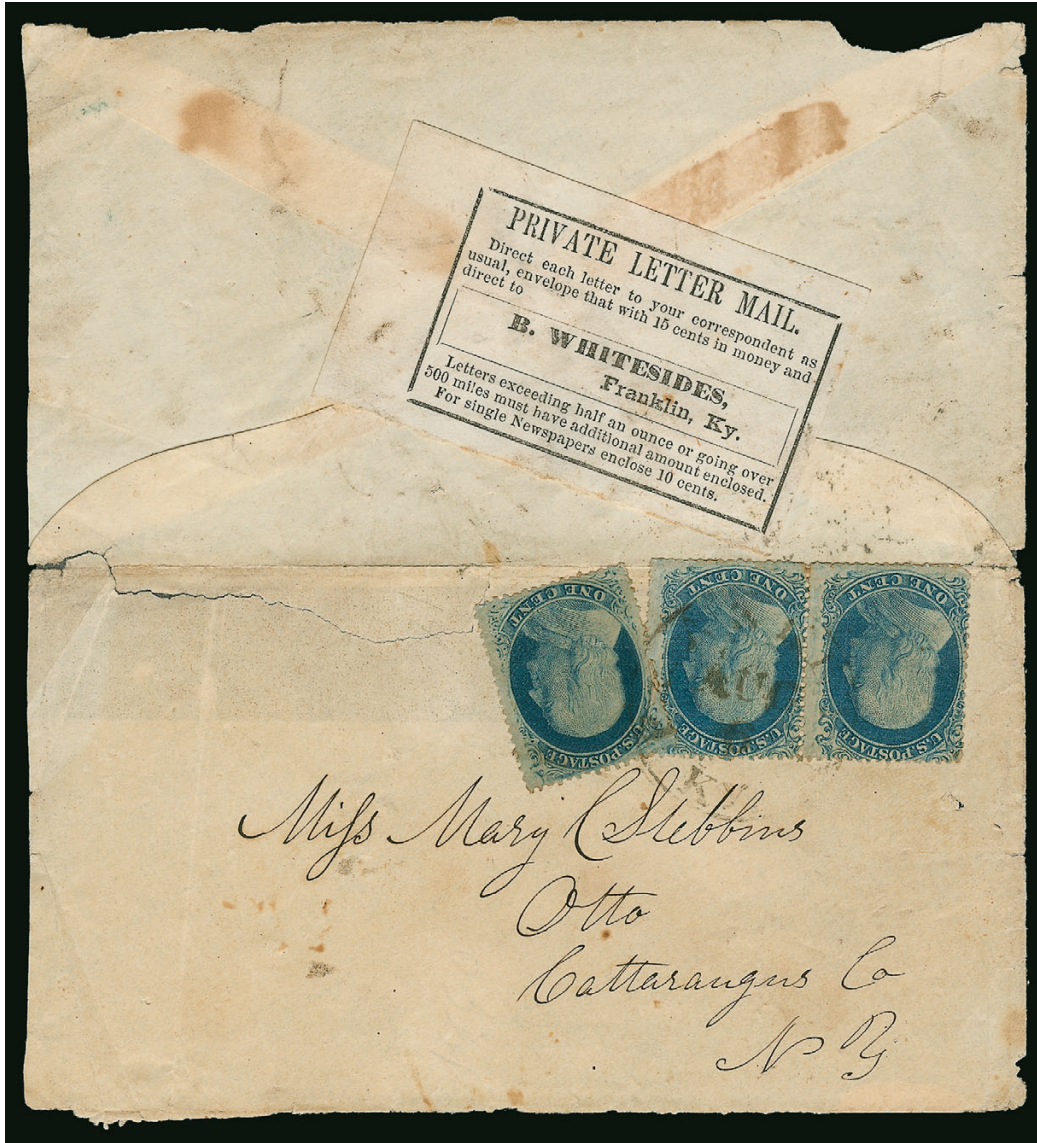 PRIVATE LETTER MAIL.
Direct each letter to your correspondent as
usual, envelope that with 15 cents in money and
direct to
B. WHITESIDES,
Franklin, Ky.
Letters exceeding half an ounce or going over
500 miles must have additional amount enclosed.
For single Newspapers enclose 10 cents.
ONE CENT
U.S. POSTAGE
ONE CENT
U.S. POSTAGE
ONE CENT
U.S. POSTAGE
AUG
KY
Miss Mary C Stebbins
Otto
Cattaraugus Co
N Y